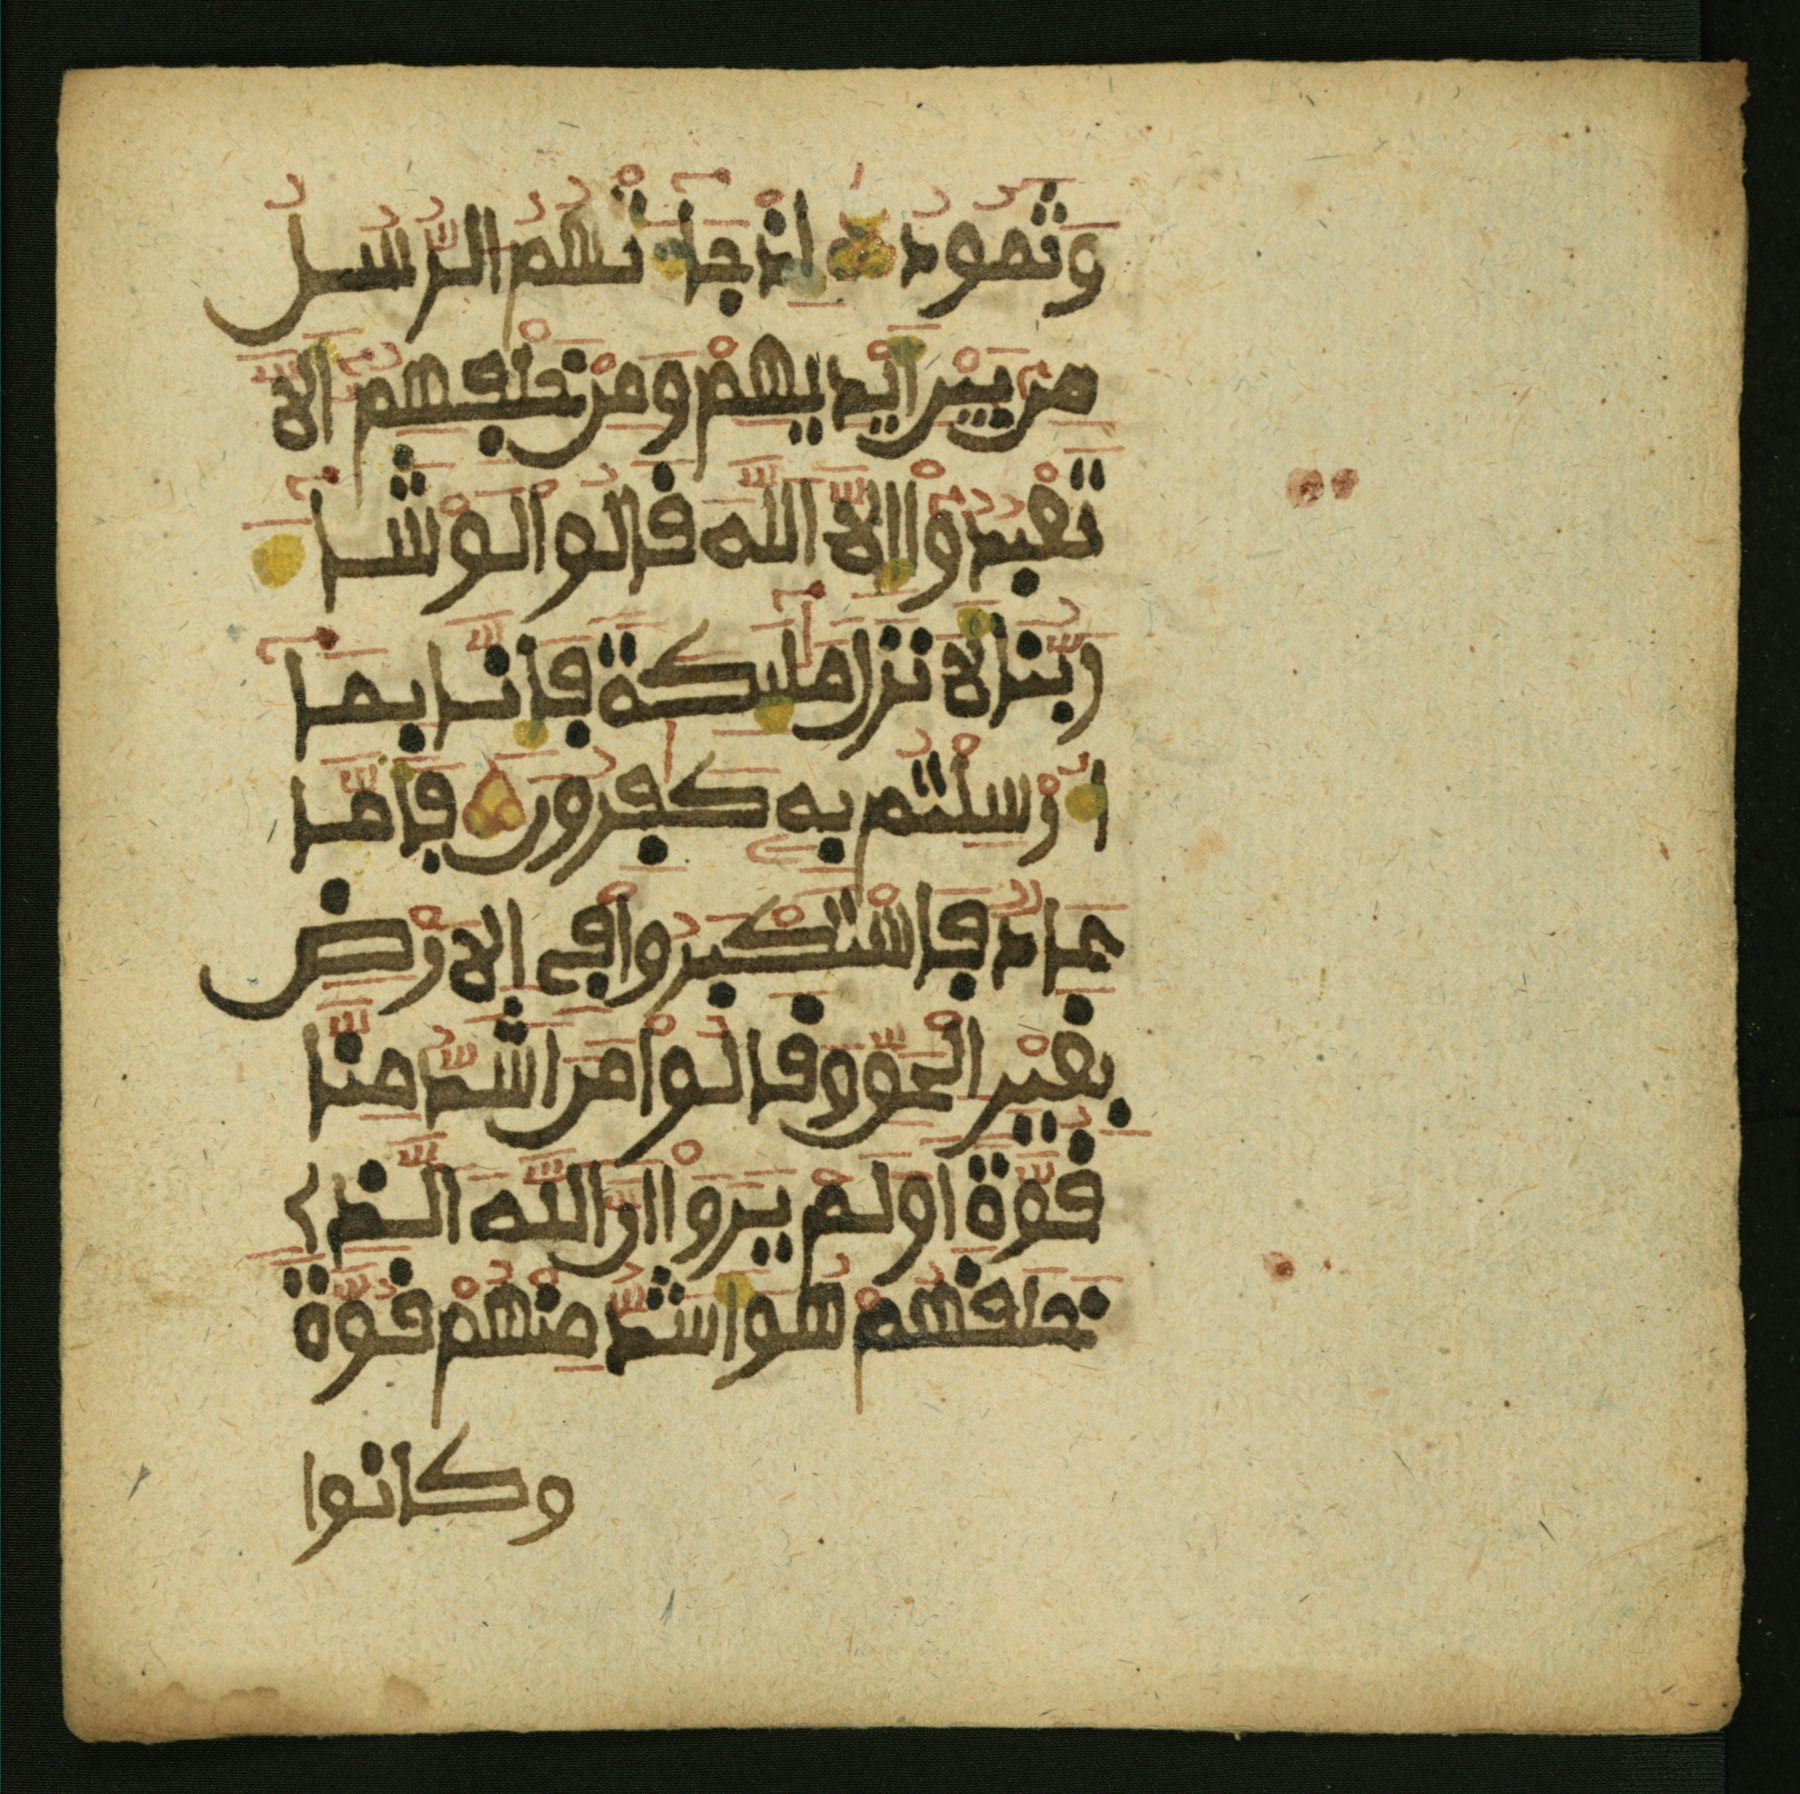 وَثَمُودَ إِذْ جَاتْهُمُ الرُّسُلُ
مِنۢ بَيْنِ أَيْدِيهِمْ وَمِنْ خَلْڢِهِمُۥٓ أَلَّا
تَعْبُدُوٓاْ إِلَّا اَللَّهَ فَالُواْ لَوْ شَآءَ
رَبُّنَا لَأَنزَلَ مَلَٰٓئِكَةً ڢَإِنَّا بِمَآ
أُرْسِلْتُم بِهِۦ كَٰڢِرُونَ ڢَأَمَّا
عَادٌ ڢَاسْتَكْبَرُواْ ڢِے الَارْضِ
بِغَيْرِ الْحَقِّ وَفَالُواْ مَنَ اَشَدُّ مِنَّا
فُوَّةً اَوَلَمْ يَرَوَاْ اَنَّ اللَّهَ الَّذِے
خَلَفَهُمْ هُوَ أَشَدُّ مِنْهُمْ فُوَّةً
وكانوا